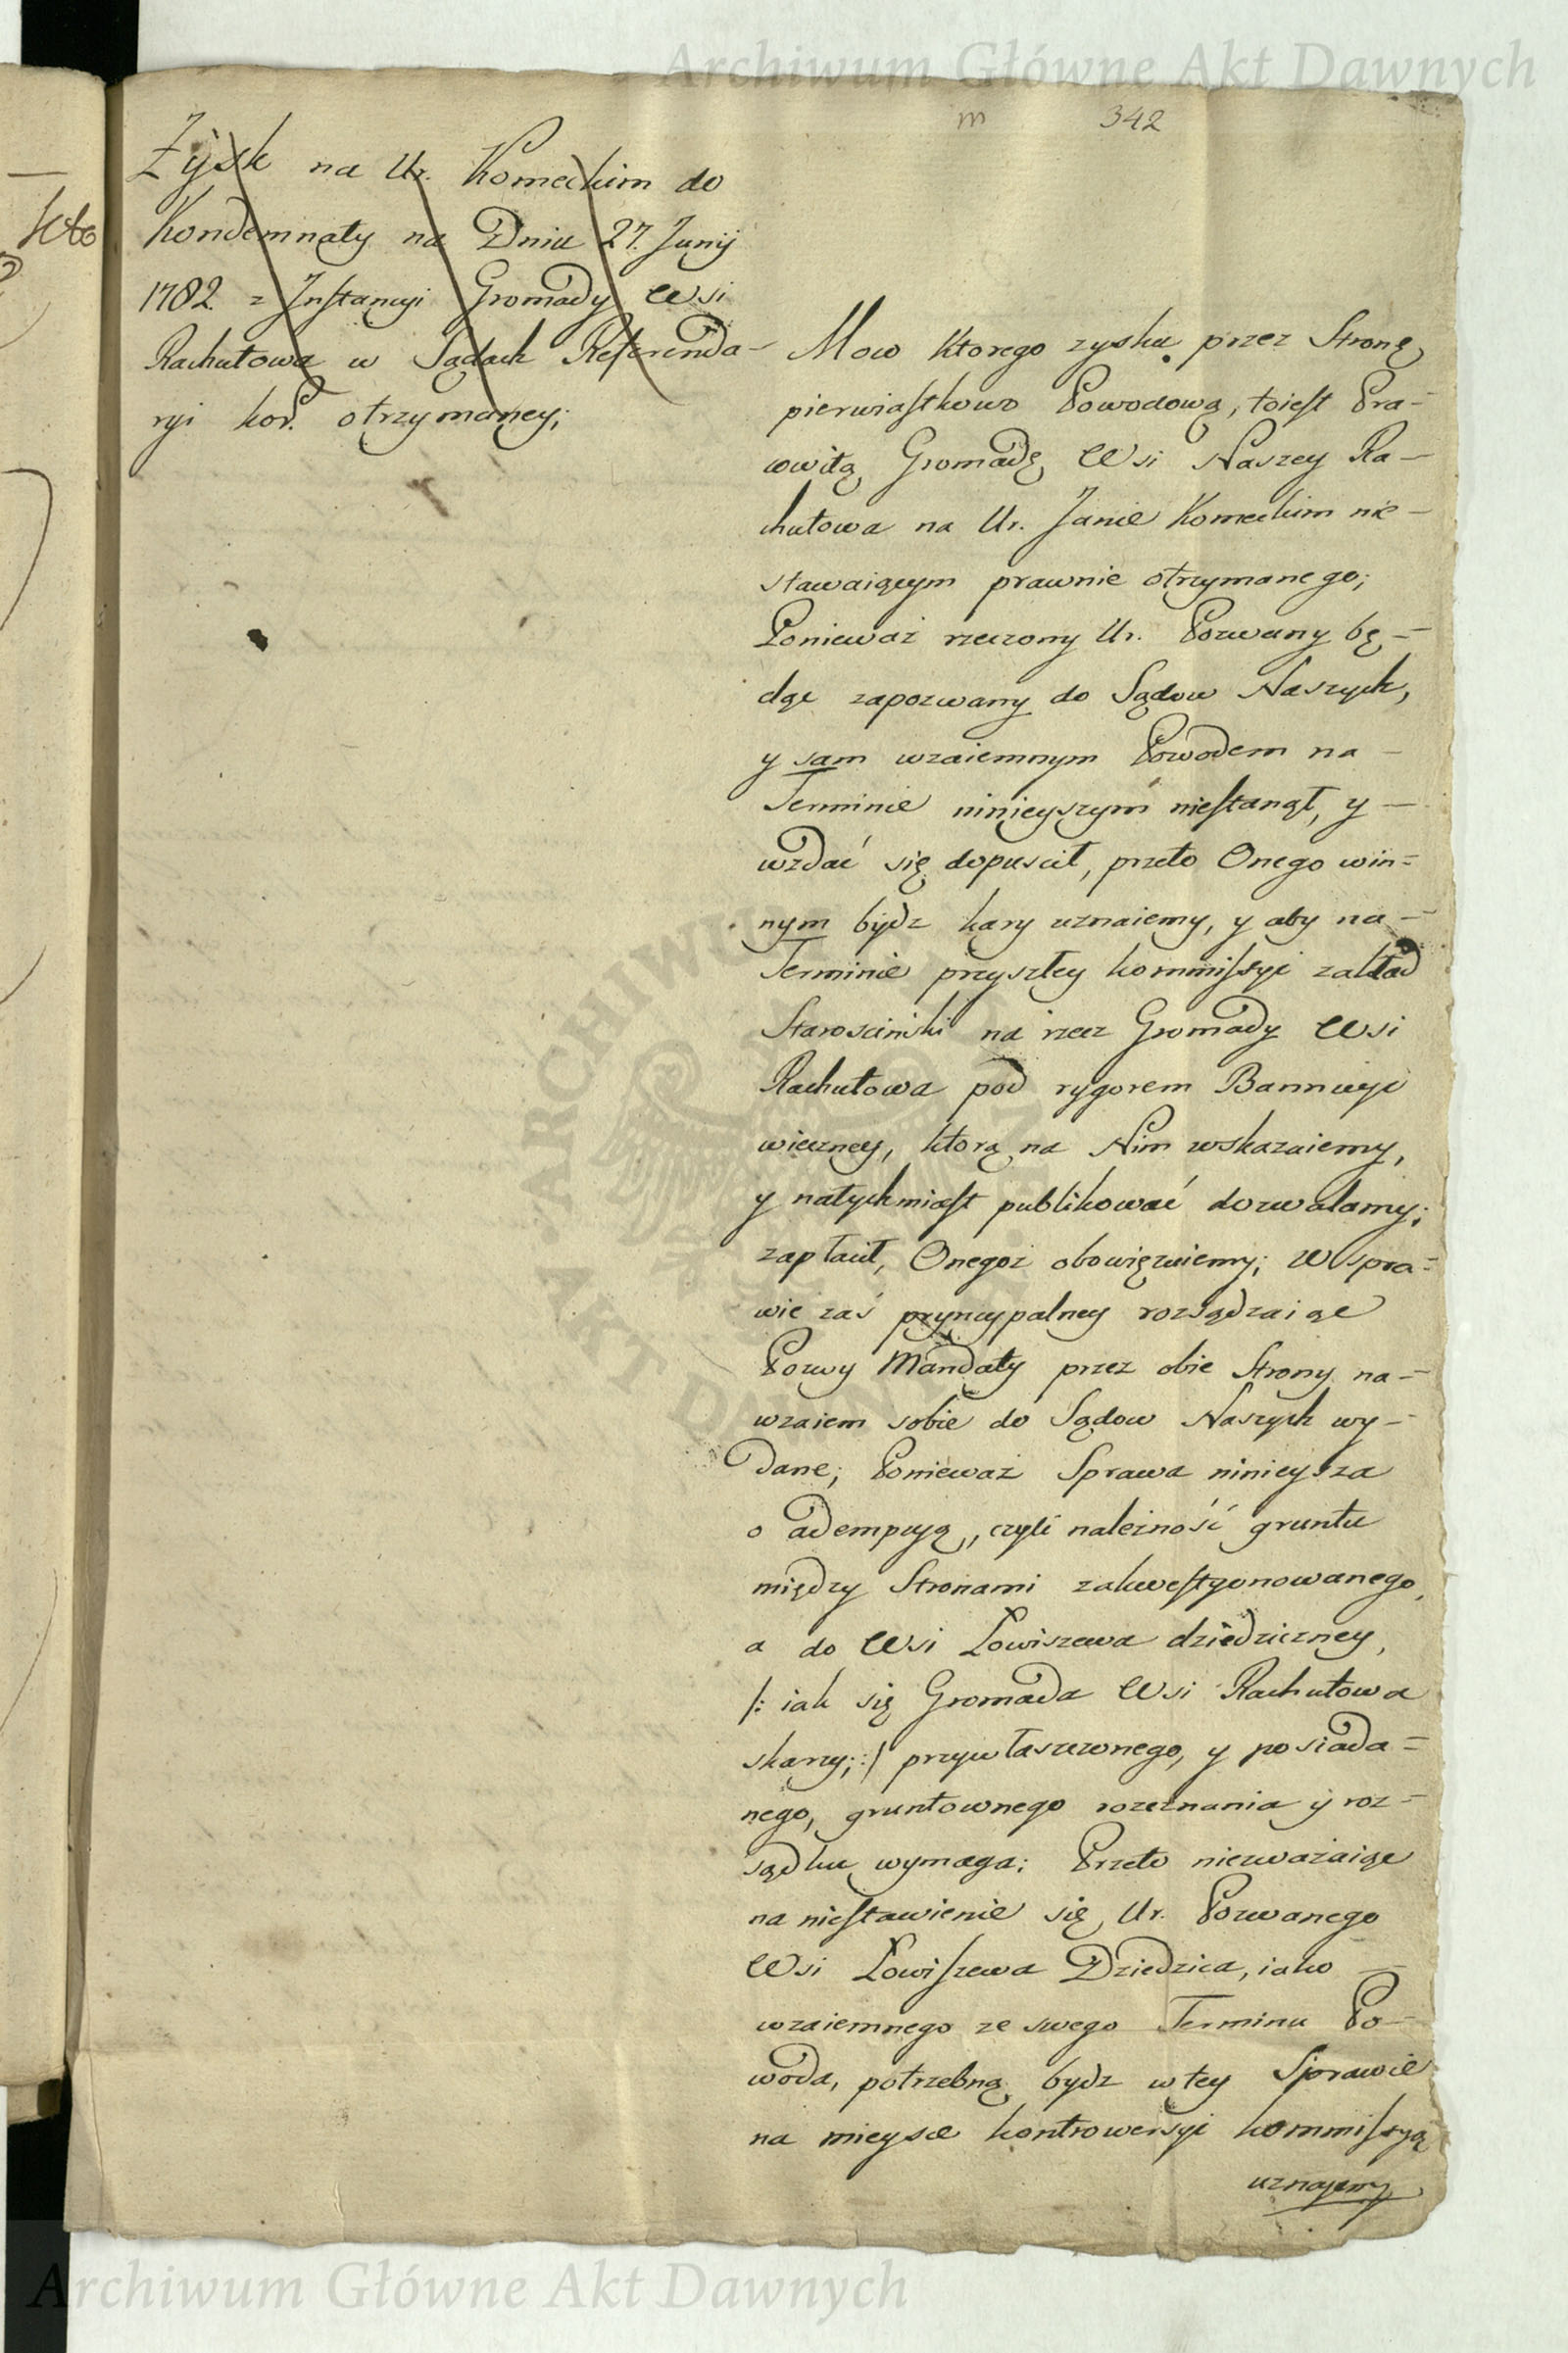 Archiwum Główne Akt Dawnych
m 342
Zysk na Ur. Komeckim do
Kondemnaty na Dniu 27. Junij
1782. z Jnstancyi Gromady Wsi
Rachutowa w Sądach Referenda-
ryi kor. otrzymaney;
Mow ktorego zysku przez Stronę
pierwiastkowo Powodową, toiest Pra-
wowitą Gromadę Wsi Naszey Ra-
chutowa na Ur. Janie Komeckim nie-
stawaiącym prawnie otrzymanego;
Ponieważ rzeczony Ur. Pozwany bę-
dąc zapozwany do Sądow Naszych,
y sam wzaiemnym Powodem na-
Terminie ninieyszym niestanął, y-
wzdać się dopuscił, przeto Onego win-
nym bydz kary uznaiemy, y aby na-
Terminie przyszłey kommissyi zakład
Starosciński na rzecz Gromady Wsi
Rachutowa pod rygorem Bannicyi
wieczney, ktorą na Nim wskazaiemy,
y natychmiast publikować dozwalamy;
zapłacił, Onegoż obowięzuiemy; W spra-
wie zaś pryncypalney rozsądzaiąc
Pozwy Mandaty przez obie Strony na-
wzaiem sobie do Sądow Naszych wy-
dane; Ponieważ Sprawa ninieysza
o adempcyą, czyli należność gruntu
między Stronami zakwestyonowanego,
a do Wsi Łowiszewa dziedziczney,
/: iak się Gromada Wsi Rachutowa
skarzy; :/ przywłaszczonego, y posiada-
nego, gruntownego rozeznania y roz-
sądku wymaga; Przeto niezważaiąc
na niestawienie się Ur. Pozwanego
Wsi Łowiszewa Dziedzica, iako
wzaiemnego ze swego Terminu Po-
woda, potrzebną bydz w tey Sprawie
na mieysce kontrowersyi kommissyą
uznaiemy
ARCHIWUM GŁÓWNE AKT DAWNYCH
Archiwum Główne Akt Dawnych